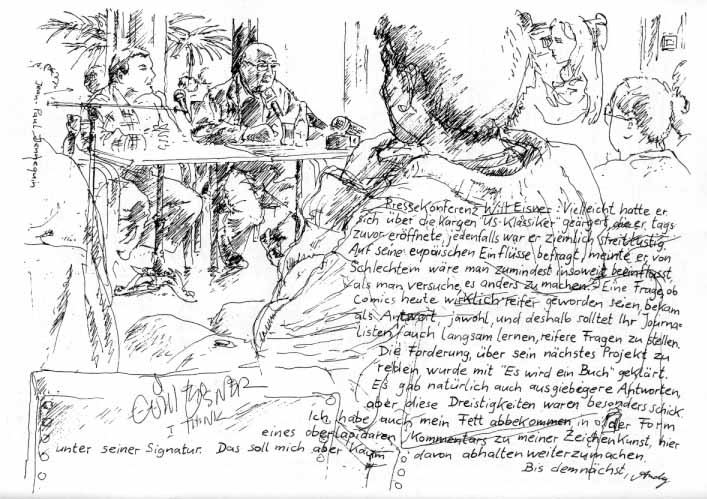 Pressekonferenz Will Eisner: Vielleicht hatte er
sich über die kargen US-Klassiker geärgert, die er tags
zuvor eröffnete, jedenfalls war er ziemlich streitlustig.
Auf seine eupäischen Einflüsse befragt, meinte er, von
Schlechtem wäre man zumindest insoweit beeinflusst,
als man versuche, es anders zu machen. Eine Frage, ob
Comics heute wirklich reifer geworden seien, bekam
als Antwort, jawohl, und deshalb solltet Ihr Journa-
listen auch langsam lernen, reifere Fragen zu stellen.
Die Forderung, über sein nächstes Projekt zu
reden, wurde mit "Es wird ein Buch" geklärt.
Es gab natürlich auch ausgiebegere Antworten,
aber diese Dreistigkeiten waren besonders schick
Ich habe auch mein Fett abbekommen in der Form
eines oberlapidaren Kommentars zu meiner Zeichenkunst, hier
unter seiner Signatur. Das soll mich aber kaum davon abhalten weiterzumachen.
Bis demnächst, Andy
WILL EISNER
I THINK